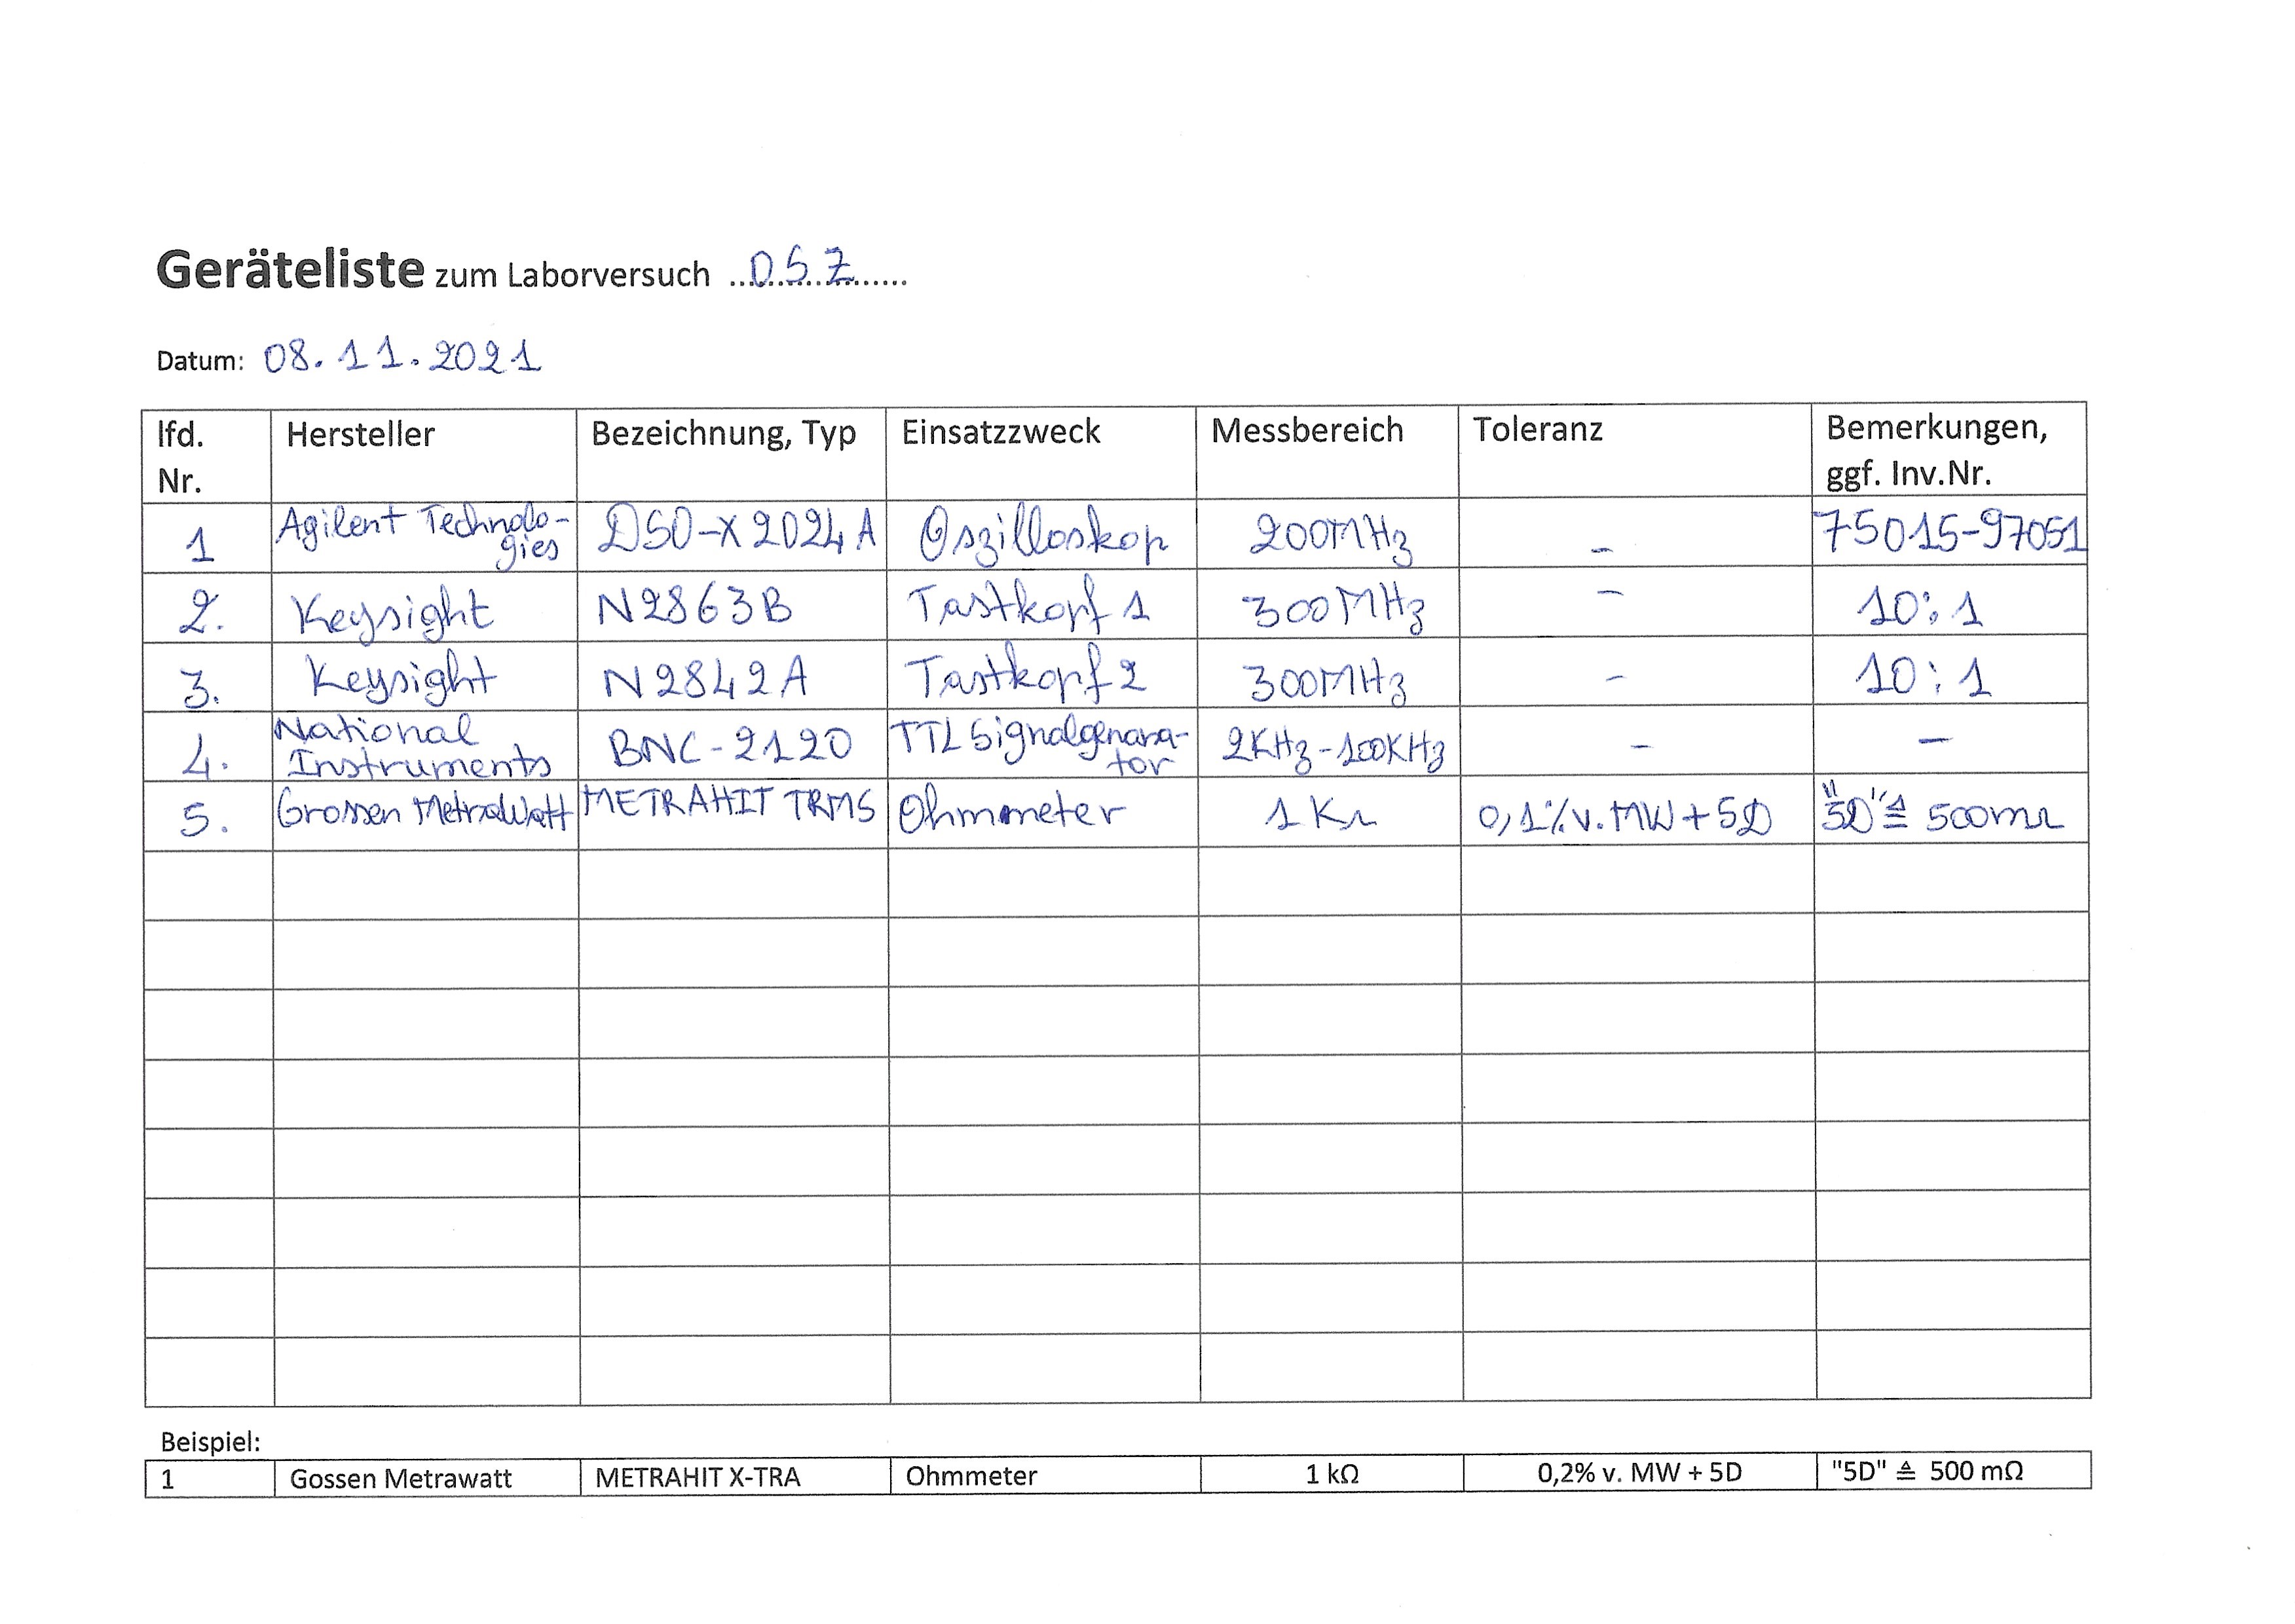 Geräteliste zum Laborversuch ...OSZ...
Datum: 08.11.2021
lfd. Nr. Hersteller Bezeichnung, Typ Einsatzzweck Messbereich Toleranz Bemerkungen, ggf. Inv.Nr.
1 Agilent Technolo-gies DSO-X 2024A Oszilloskop 200MHz - 75015-97051
2. Keysight N2863B Tastkopf 1 300MHz - 10:1
3. Keysight N2842A Tastkopf 2 300MHz - 10:1
4. National Instruments BNC-2120 TTL Signalgenara-tor 2KHz-100KHz - -
5. Grossen MetraWatt METRAHIT TRMS Ohmmeter 1 KΩ 0,1% v. MW + 5D "5D" ≙ 500mΩ
Beispiel:
1 Gossen Metrawatt METRAHIT X-TRA Ohmmeter 1 kΩ 0,2% v. MW + 5D "5D" ≙ 500 mΩ